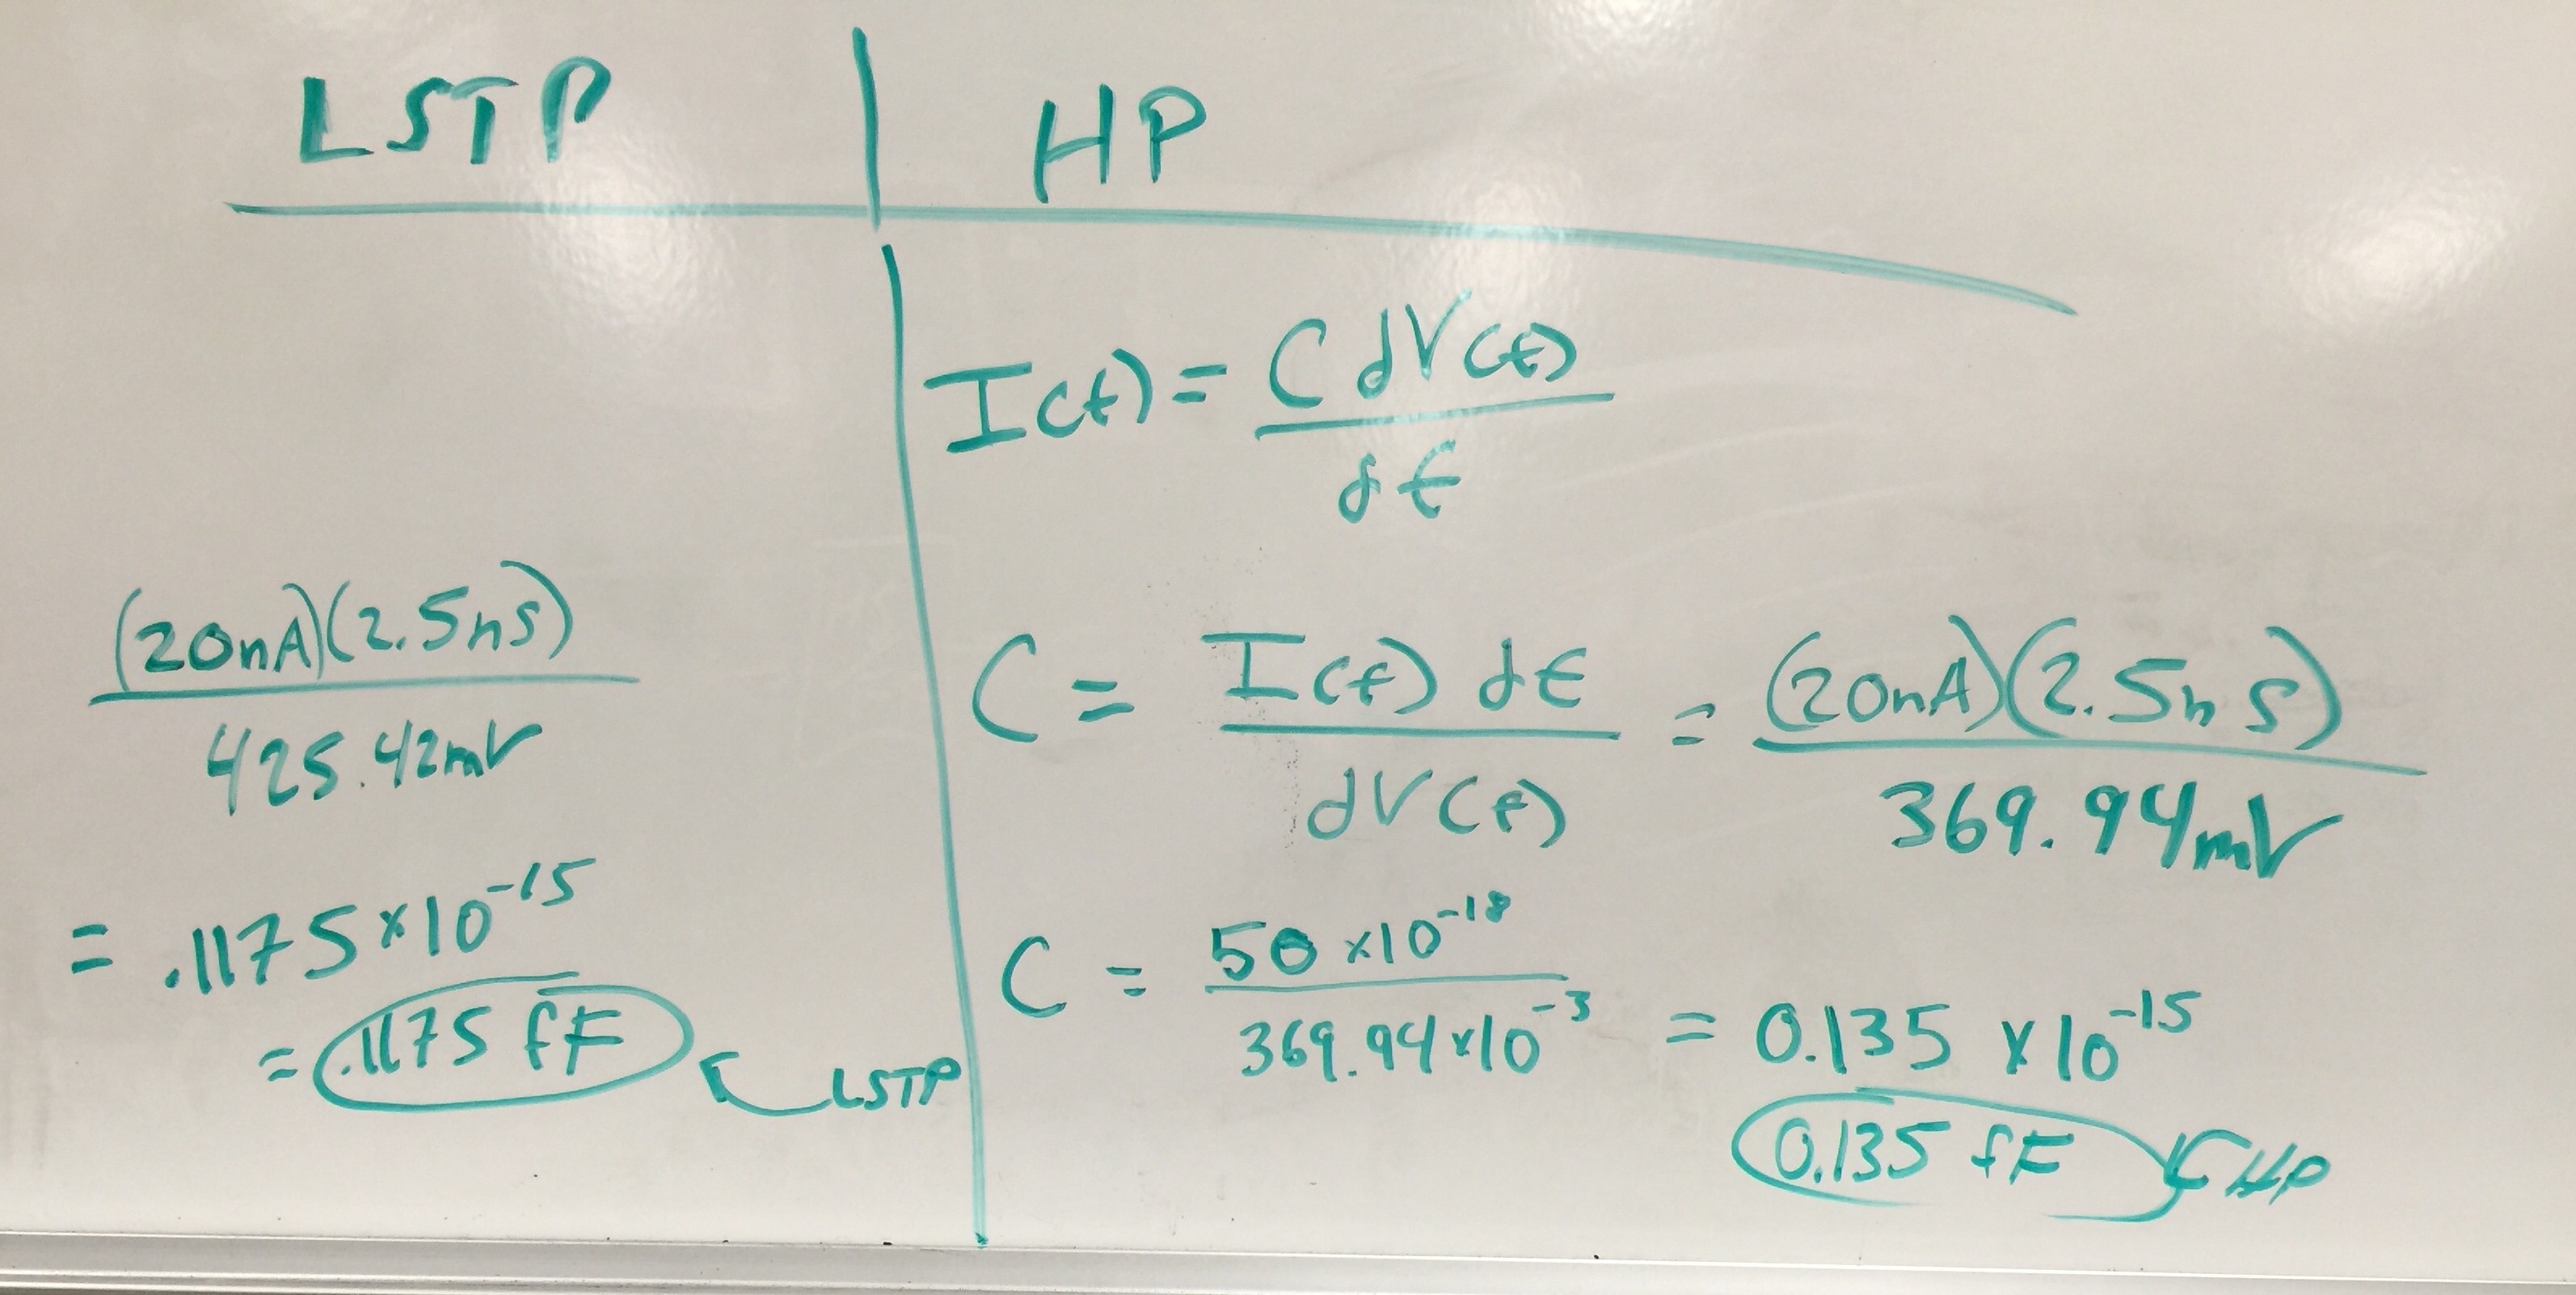 LSTP
(20nA)(2.5ns)
425.42mV
= .1175×10^-15
= .1175 fF
LSTP
HP
I(t) = C dV(t)
dt
C = I(t) dt = (20nA)(2.5ns)
dV(t) 369.94mV
C = 50 ×10^-18
369.94×10^-3 = 0.135 ×10^-15
0.135 fF HP